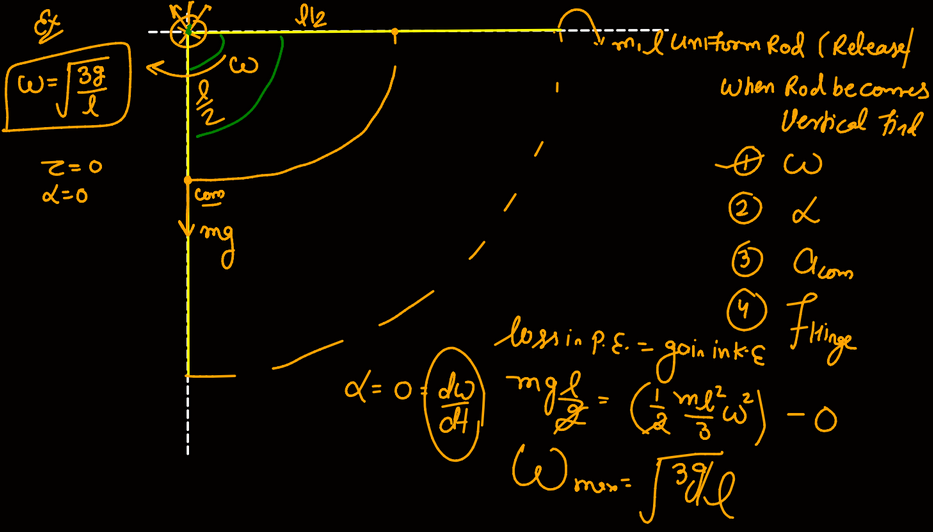 Ex
ω = √(3g/l)
τ = 0
α = 0
l/2
ω
l/2
com
mg
m, l Uniform Rod (Release)
When Rod becomes
Vertical find
① ω
② α
③ a com
④ F Hinge
loss in P.E. = gain in K.E
mg l/2 = (1/2 ml²/3 ω²) - 0
α = 0 = dω/dt
ω max = √3g/l